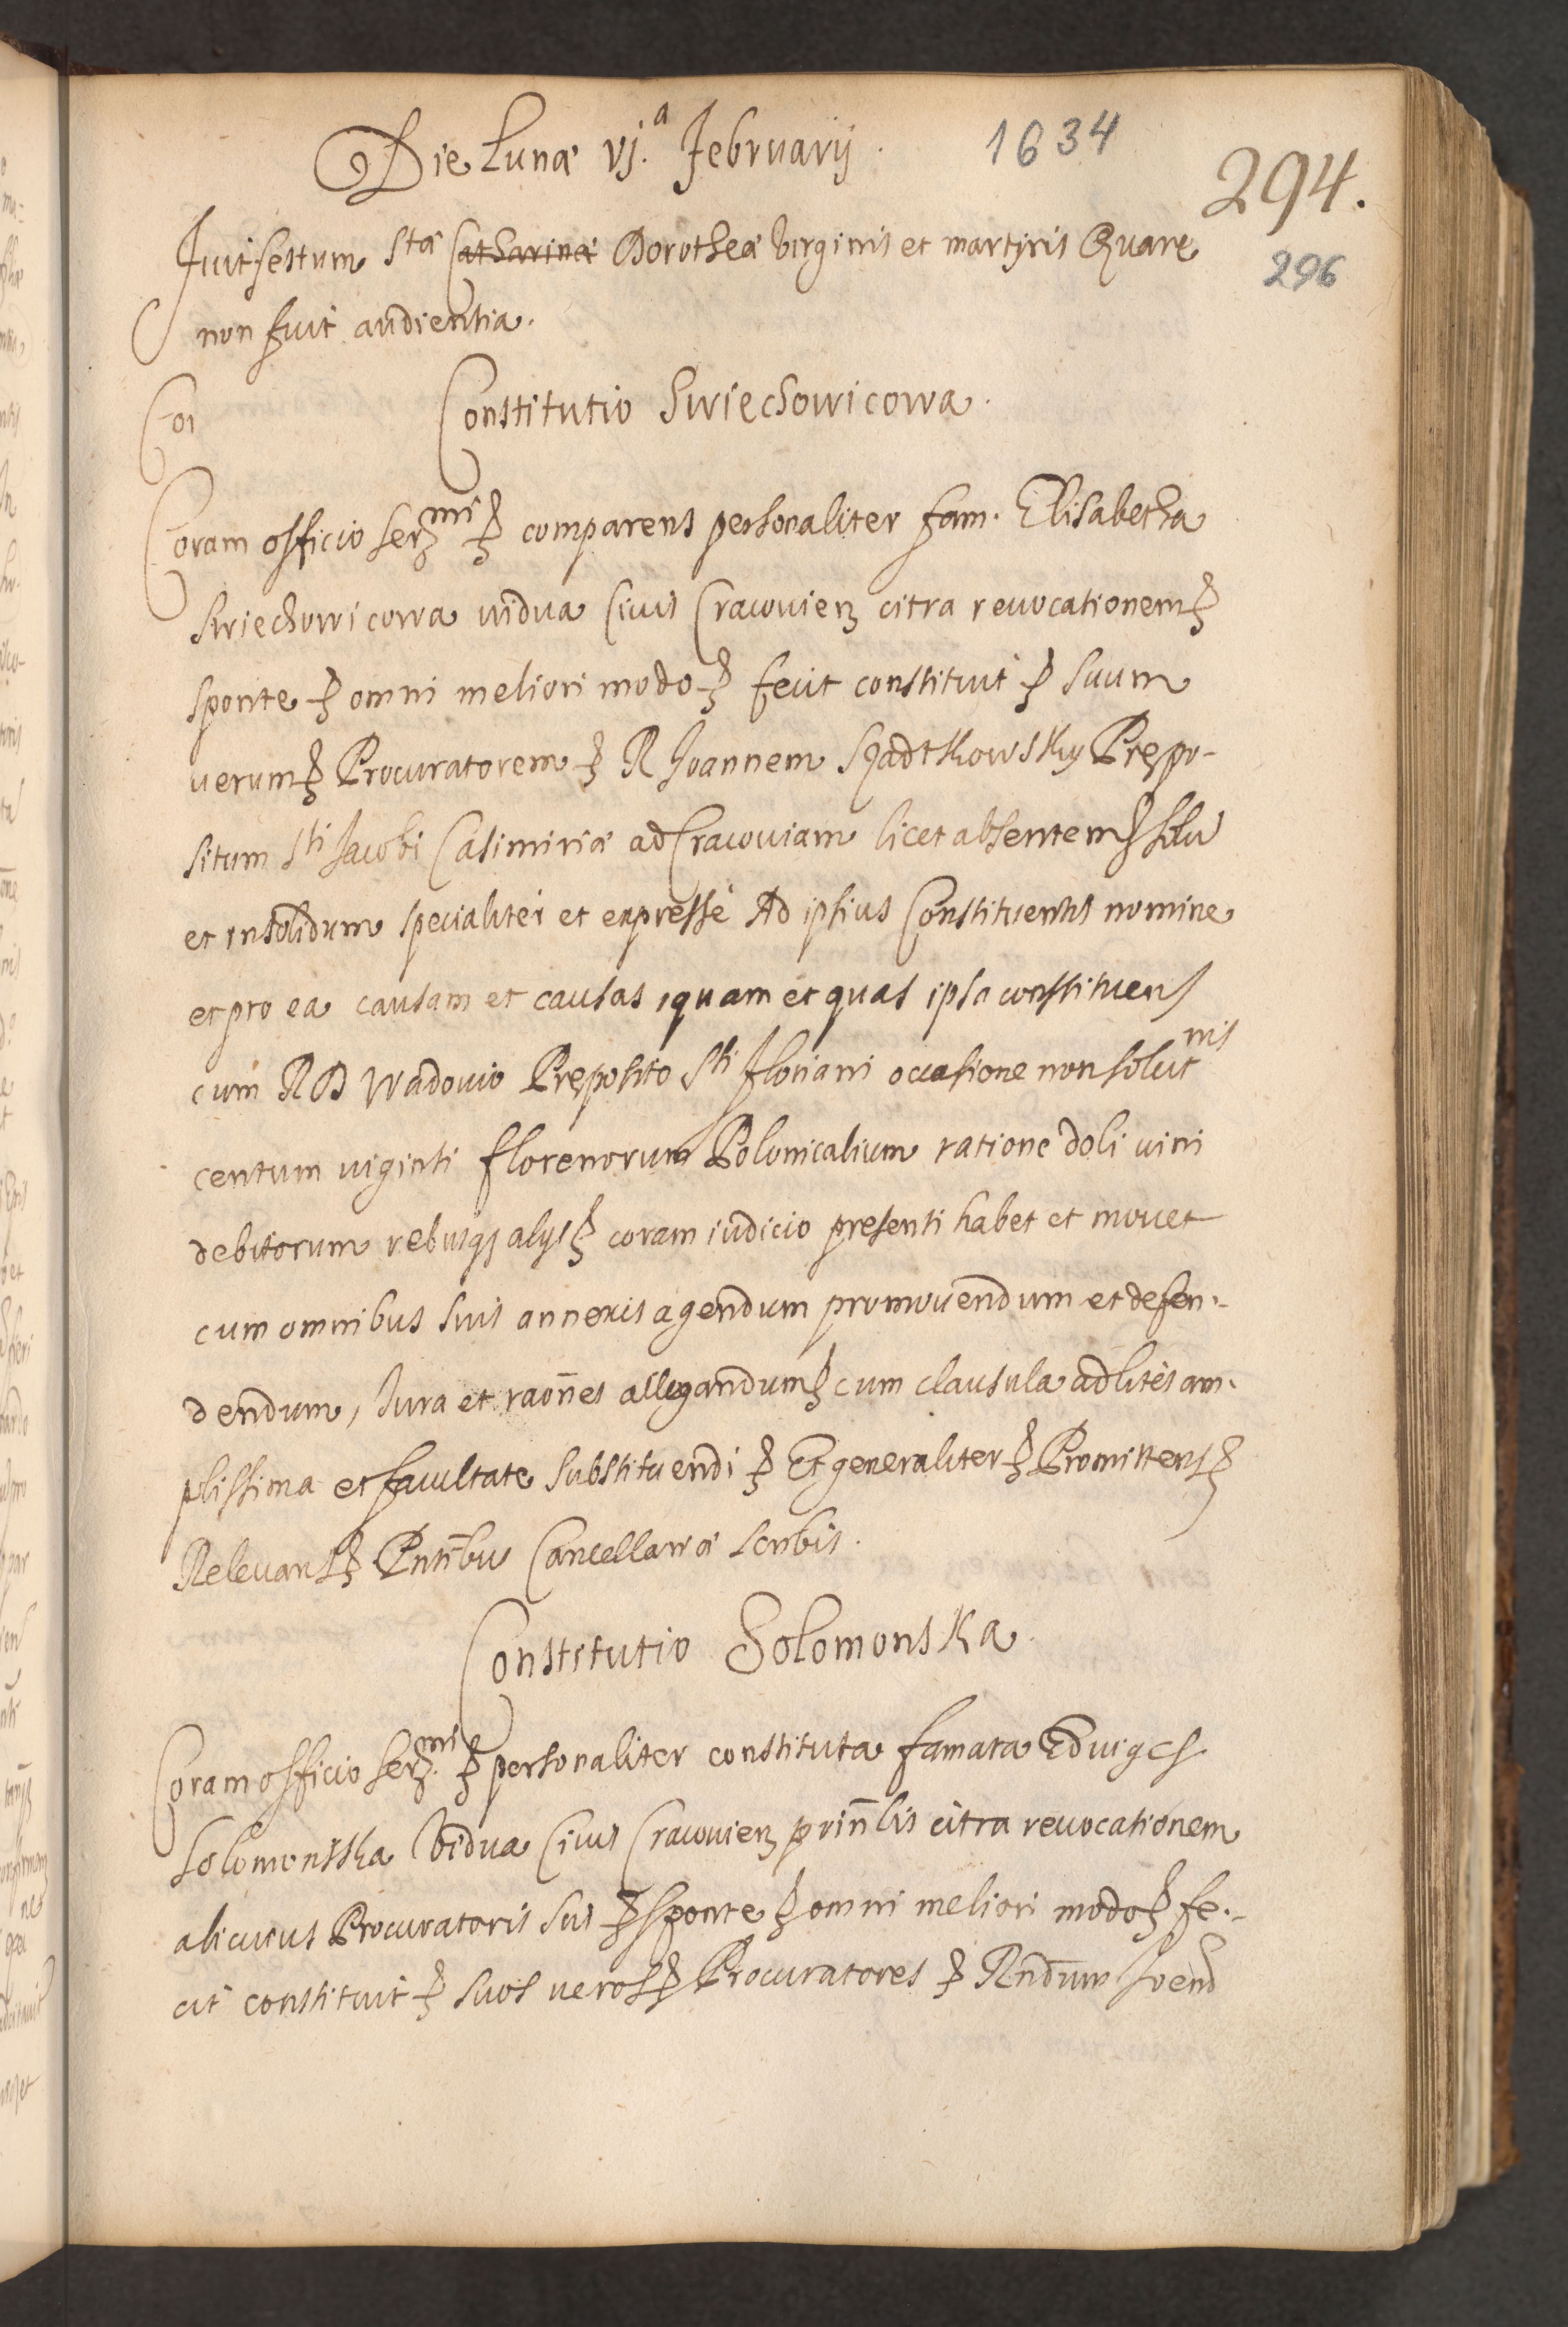 Die Lunæ vj.ª Februarij .
1634
294.
296
Fuit festum Stæ Catharinæ Dorotheæ Virginis et martyris Quare
non fuit audientia.
Constitutio Swiechowicowa.
Coi
Coram officio Sermi etc comparens personaliter fam. Elisabetha
Swiechowicowa vidua Civis Cracovien citra revocationem etc
sponte etc omni meliori modo etc fecit constituit etc suum
verum etc Procuratorem etc R Joannem Sządtkowsky Prępo-
situm Sti Jacobi Casimiriæ ad Cracoviam licet absentem etc solū
et insolidum specialiter et expressè Ad ipsius Constituentis nomine
et pro ea causam et causas, quam et quas ipsa constituens
cum RD Wadovio Pręposito Sti Floriani occasione non solutnis
centum viginti florenorum Polonicalium ratione doli vini
debitorum rebusqз alijs etc coram iudicio presenti habet et movet
cum omnibus suis annexis agendum promovendum et defen-
dendum, Jura et raoñes allegandum etc cum clausula ad lites am-
plissima et facultate substituendi etc Et generaliter etc Promittens etc
Relevans etc Pñtibus Cancellariæ scribis.
Constitutio Solomonska.
Coram officio Sermi. etc personaliter constituta famata Edviges
Solomonska Vidua Civis Cracovien prinlis citra revocationem
alicuius Procuratoris sui etc sponte etc omni meliori modo etc fe-
cit constituit etc suos veros etc Procuratores etc Rndum